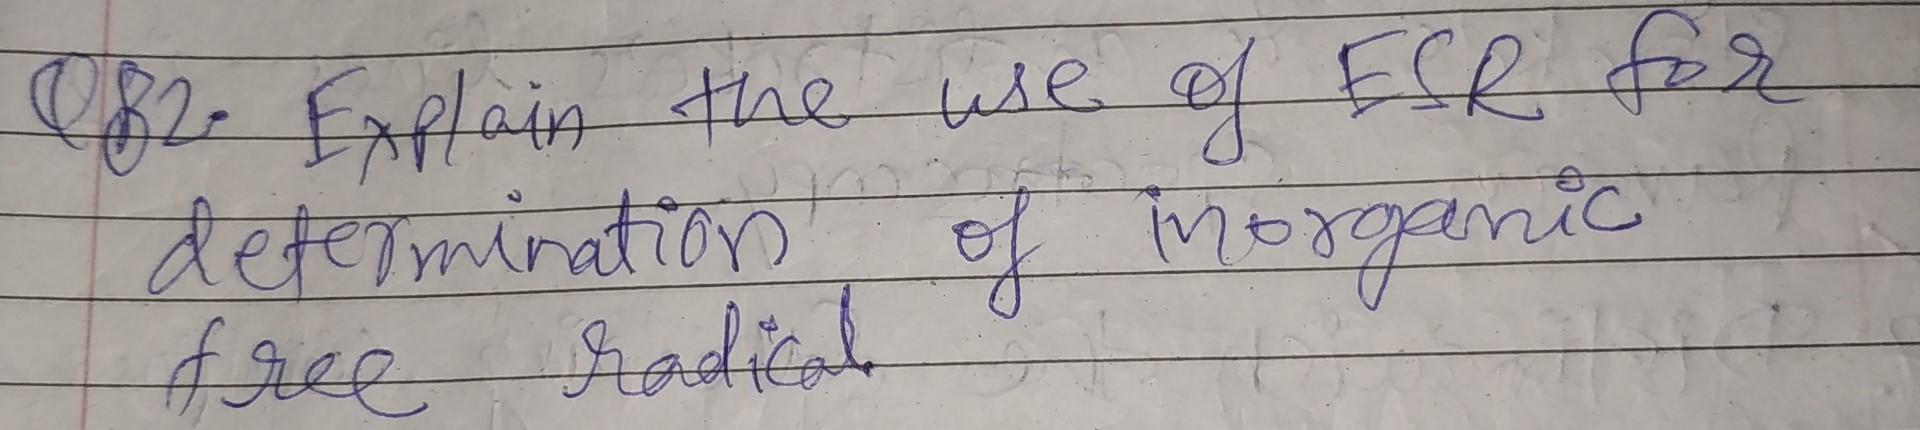 Q82. Explain the use of ESR for
determination of inorganic
free radical